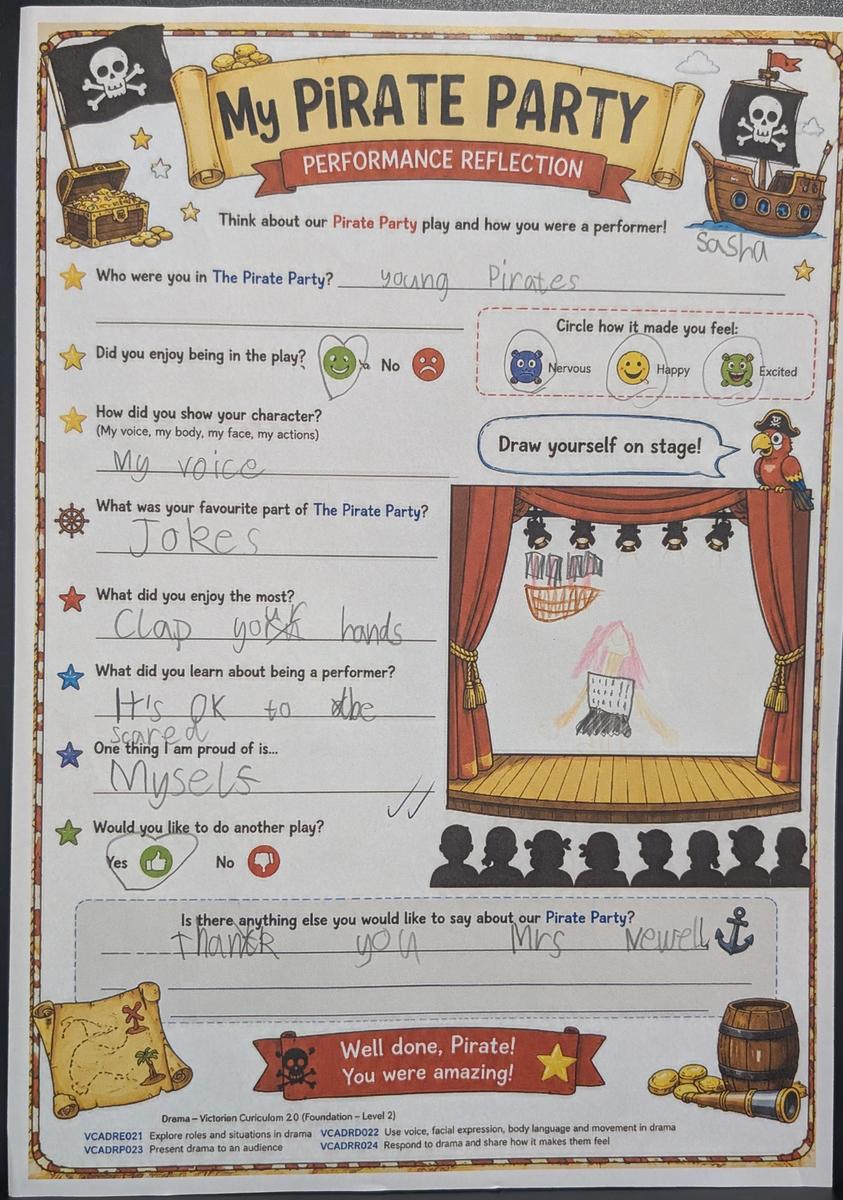 My PiRATE PARTY
PERFORMANCE REFLECTION
Think about our Pirate Party play and how you were a performer!
Sasha
Who were you in The Pirate Party? young Pirates
Circle how it made you feel:
Did you enjoy being in the play? No
Nervous Happy Excited
How did you show your character?
(My voice, my body, my face, my actions)
My voice
Draw yourself on stage!
What was your favourite part of The Pirate Party?
Jokes
What did you enjoy the most?
Clap hands
What did you learn about being a performer?
It's OK to be
scared
One thing I am proud of is...
Myself
Would you like to do another play?
Yes No
Is there anything else you would like to say about our Pirate Party?
Thank you Mrs Newell
Well done, Pirate!
You were amazing!
Drama – Victorian Curiculum 2.0 (Foundation – Level 2)
VCADRE021 Explore roles and situations in drama VCADRD022 Use voice, facial expression, body language and movement in drama
VCADRP023 Present drama to an audience VCADRR024 Respond to drama and share how it makes them feel